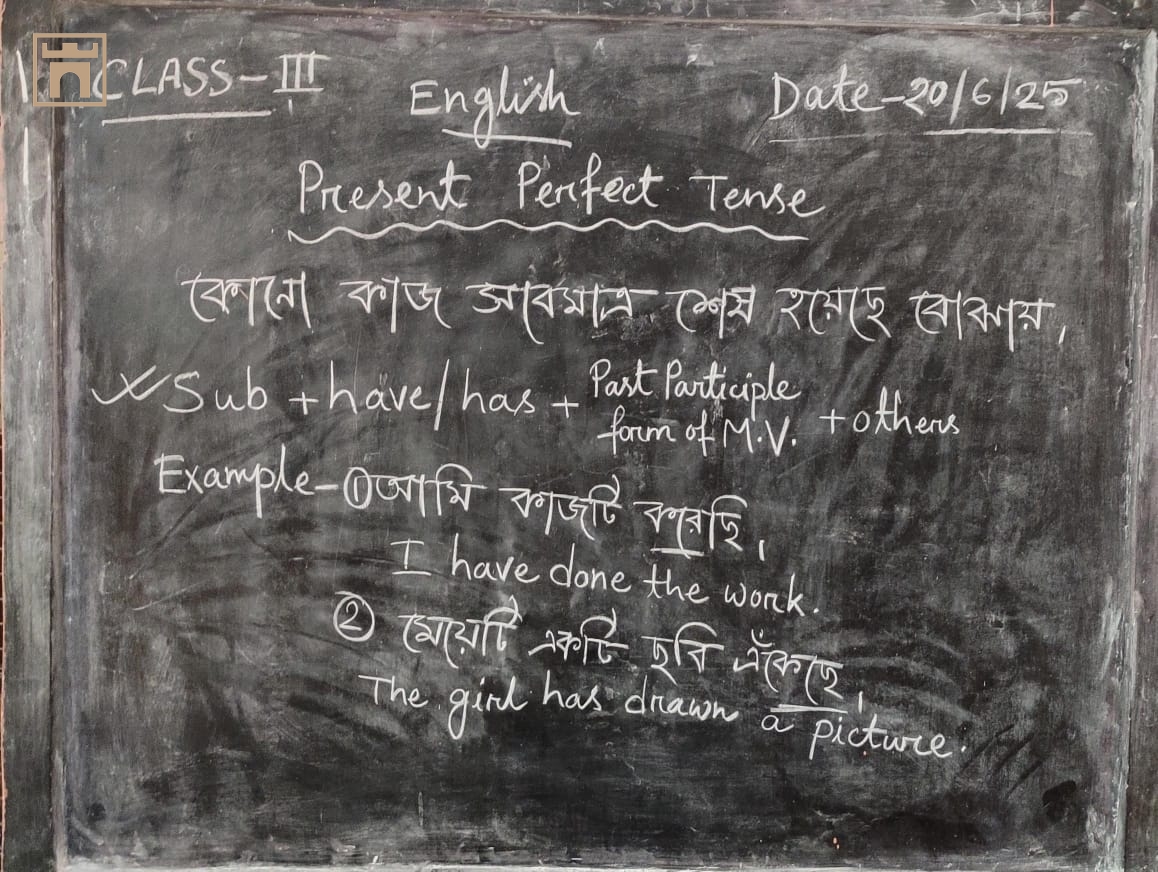 CLASS-III English Date-20/6/25
Present Perfect Tense
কোনো কাজ সবেমাত্র শেষ হয়েছে বোঝায়।
Sub + have/has + Past Participle form of M.V. + others
Example- ① আমি কাজটি করেছি।
I have done the work.
② মেয়েটি একটি ছবি এঁকেছে।
The girl has drawn a picture.